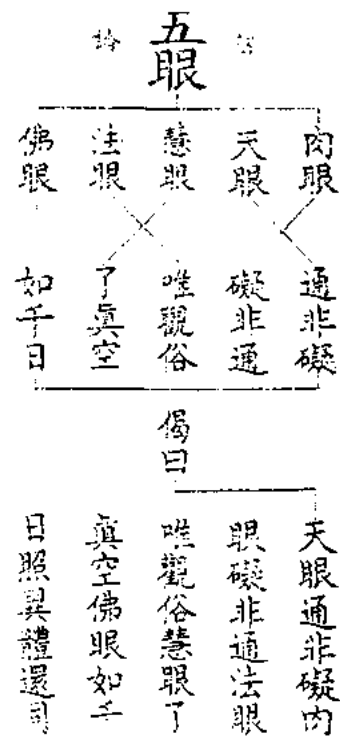 五眼
肉眼
天眼
慧眼
法眼
佛眼
通非礙
礙非通
唯觀俗
了眞空
如千日
偈曰
天眼通非礙肉
眼礙非通法眼
唯觀俗慧眼了
眞空佛眼如千
日照異體還同